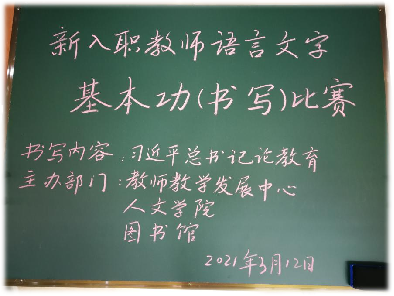 新入职教师语言文字
基本功(书写)比赛
书写内容:习近平总书记论教育
主办部门:教师教学发展中心
人文学院
图书馆
2021年3月12日